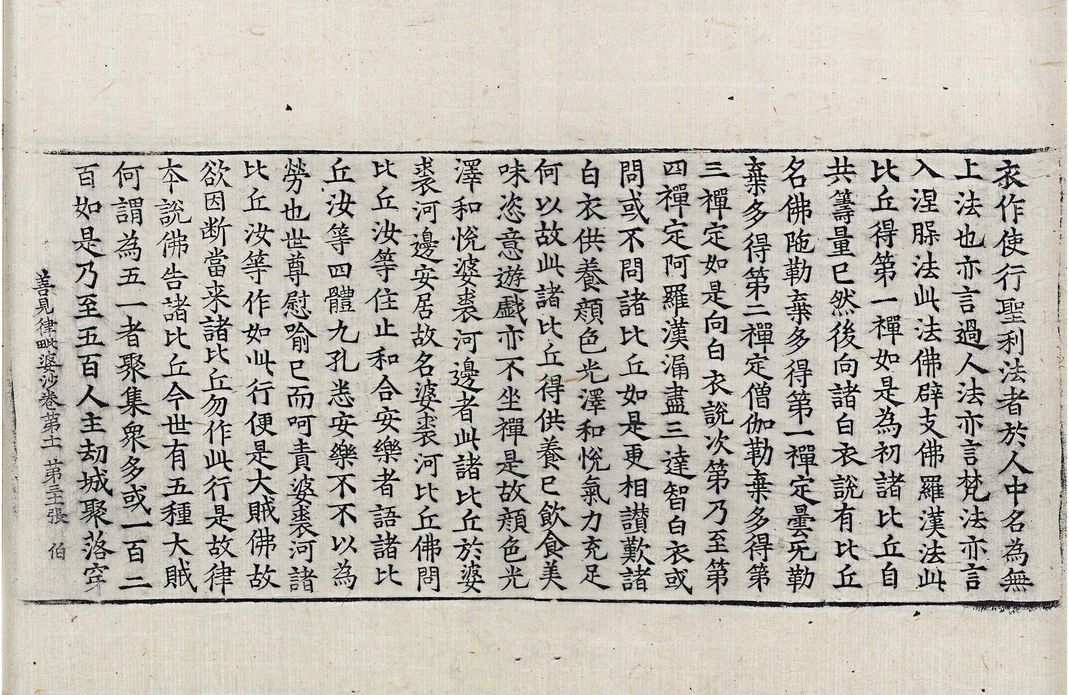 衣作使行聖利法者於人中名為無
上法也亦言過人法亦言梵法亦言
入涅脲法此法佛辟支佛羅漢法此
比丘得第一禪如是為初諸比丘自
共籌量已然後向諸白衣說有比丘
名佛陁勒棄多得第一禪定曇无勒
棄多得第二禪定僧伽勒棄多得第
三禪定如是向白衣說次第乃至第
四禪定阿羅漢漏盡三達智白衣或
問或不問諸比丘如是更相讃歎諸
白衣供養顔色光澤和悅氣力充足
何以故此諸比丘得供養已飲食美
味恣意遊戲亦不坐禪是故顔色光
澤和悅婆裘河邊者此諸比丘於婆
裘河邊安居故名婆裘河比丘佛問
比丘汝等住止和合安樂者語諸比
丘汝等四體九孔悉安樂不不以為
勞也世尊慰喻已而呵責婆裘河諸
比丘汝等作如此行便是大賊佛故
欲因断當来諸比丘勿作此行是故律
夲說佛告諸比丘今世有五種大賊
何謂為五一者聚集衆多或一百二
百如是乃至五百人主劫城聚落穿
善見律毗婆沙卷第十一 第二十張 伯